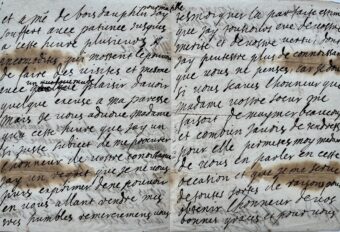 et a mé de bois dauphin
souffert avec patience jusques
a cette heure plusieurs
incomodites qui mostent le pouvoir
de faire des visites et mesme
avec plaisir davoir
quelque excuse a ma paresse
mais je vous advoue madame
qua cette heure que jay un
si juste subiect de me procurer
lhonneur de vostre
jay un regret que je ne vous
puis exprimer de ne pouvoir
en vous allant rendre mes
tres humbles remerciemens vous
tesmoigner la parfaite estime
que jay tousjours eue de vostre
merite et de vostre vertu dont
jay peutestre plus de connoissance
que vous ne penses car je
si vous saves lhonneur que
madame vostre soeur me
faisoit de maymer beaucoup
et combien javois de tendresse
pour elle permettes moy madame
de vous en parler en cette
occasion et que je me serve
de toutes sortes de raisons pour
obtenir lhonneur de vos
bonnes graces et pour vous